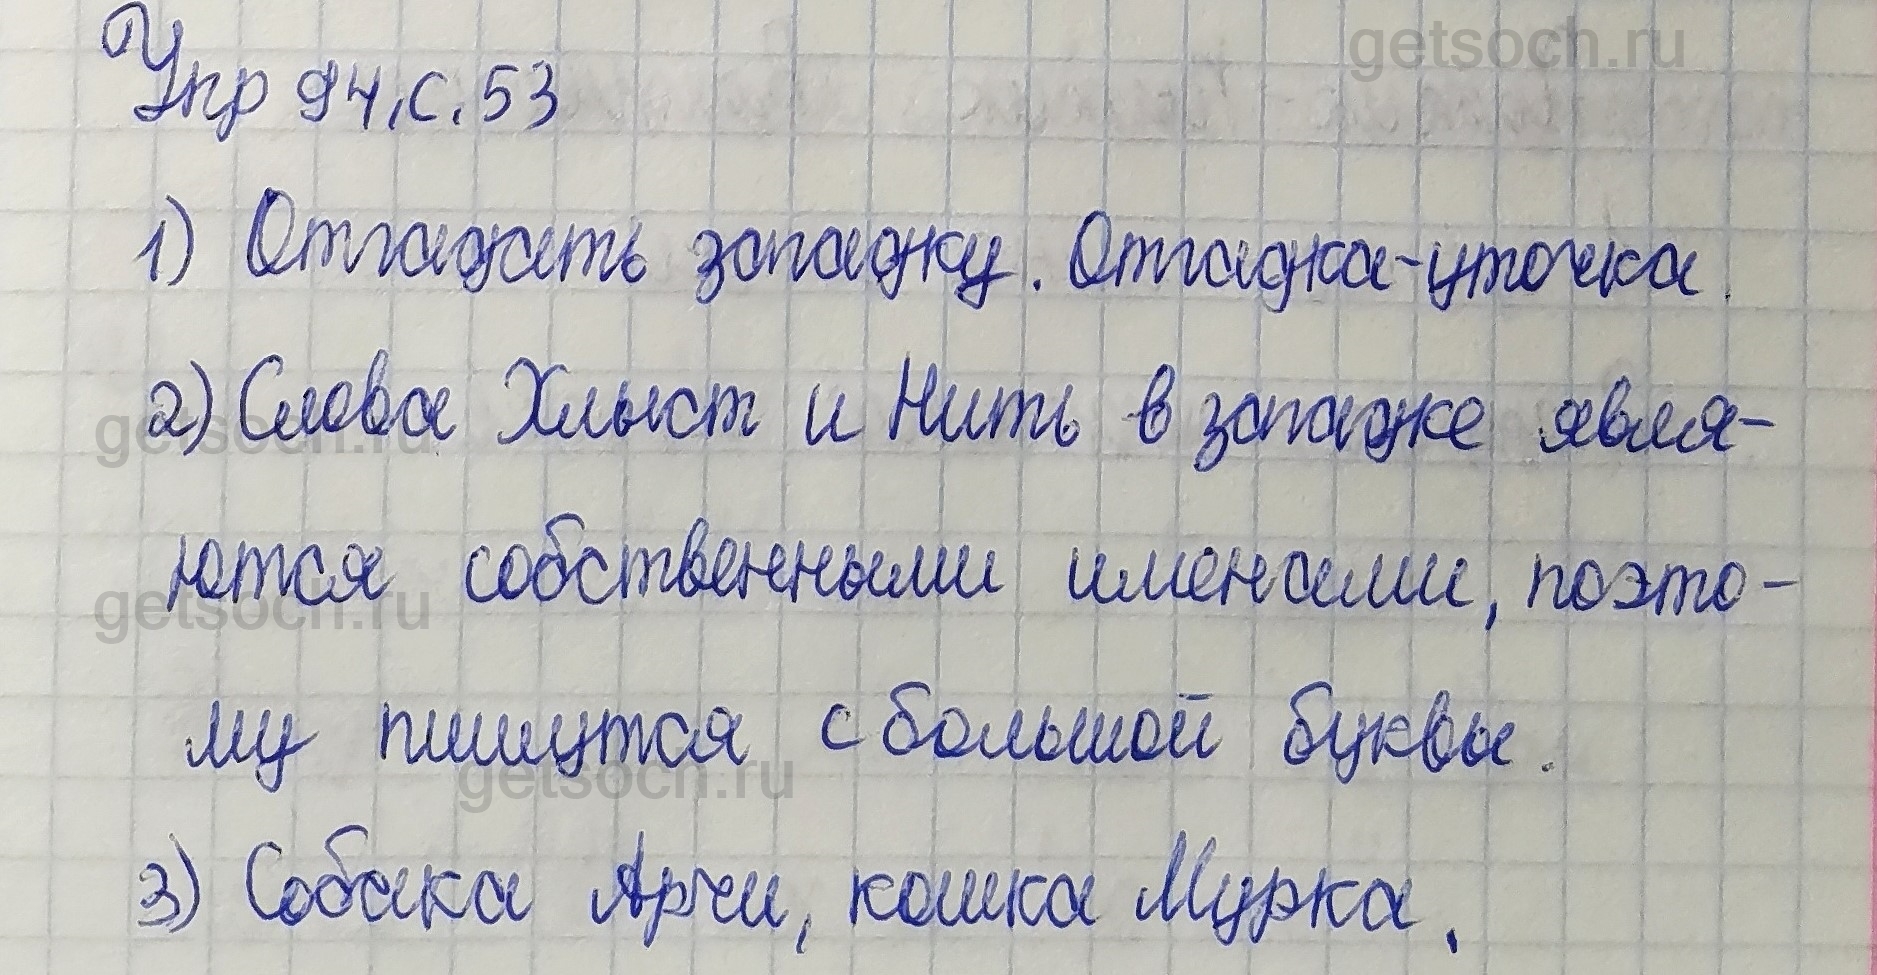 getsoch.ru
Упр 94, с. 53
1) Отгадать загадку. Отгадка-уточка.
2) Слова Хлыст и Нить в загадке явля-
getsoch.ru
ются собственными именами, поэто-
getsoch.ru
му пишутся с большой буквы.
getsoch.ru
3) Собака Арчи, кошка Мурка.